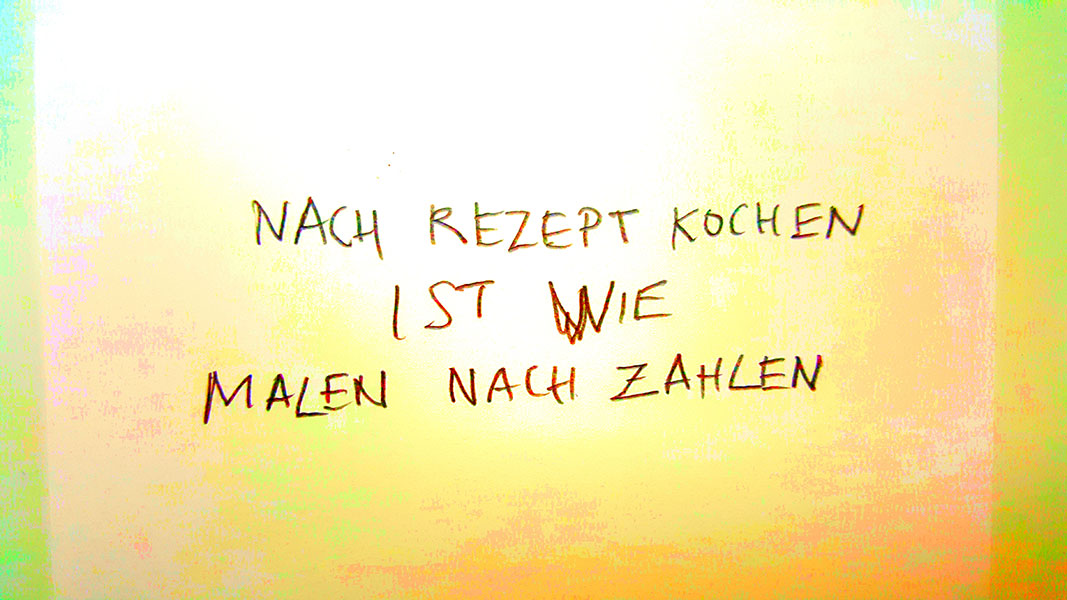 NACH REZEPT KOCHEN
IST WIE
MALEN NACH ZAHLEN